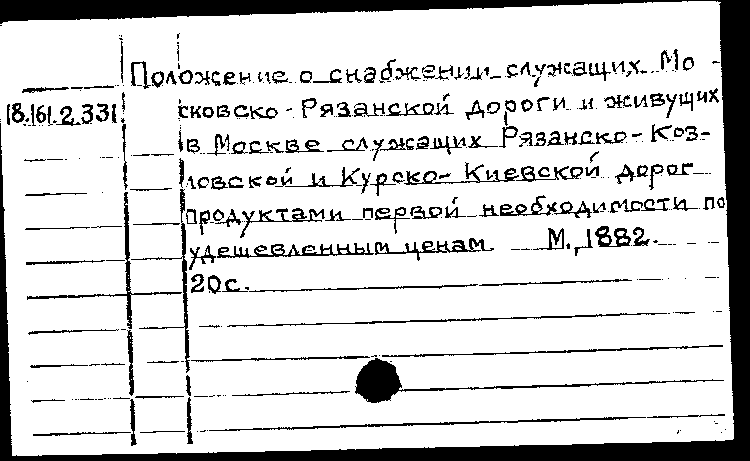 Положение о снабжении служащих Мо-
18.161.2.331 сковско-Рязанской дороги и живущих
в Москве служащих Рязанско-Коз-
ловской и Курско-Киевской дорог
продуктами первой необходимости по
удешевленным ценам. М., 1882.
20с.